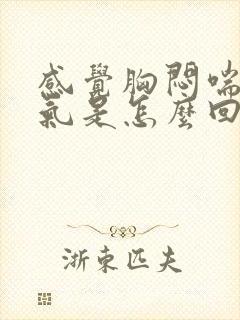 感覺胸悶喘
氣是怎麼回
浙東匹夫